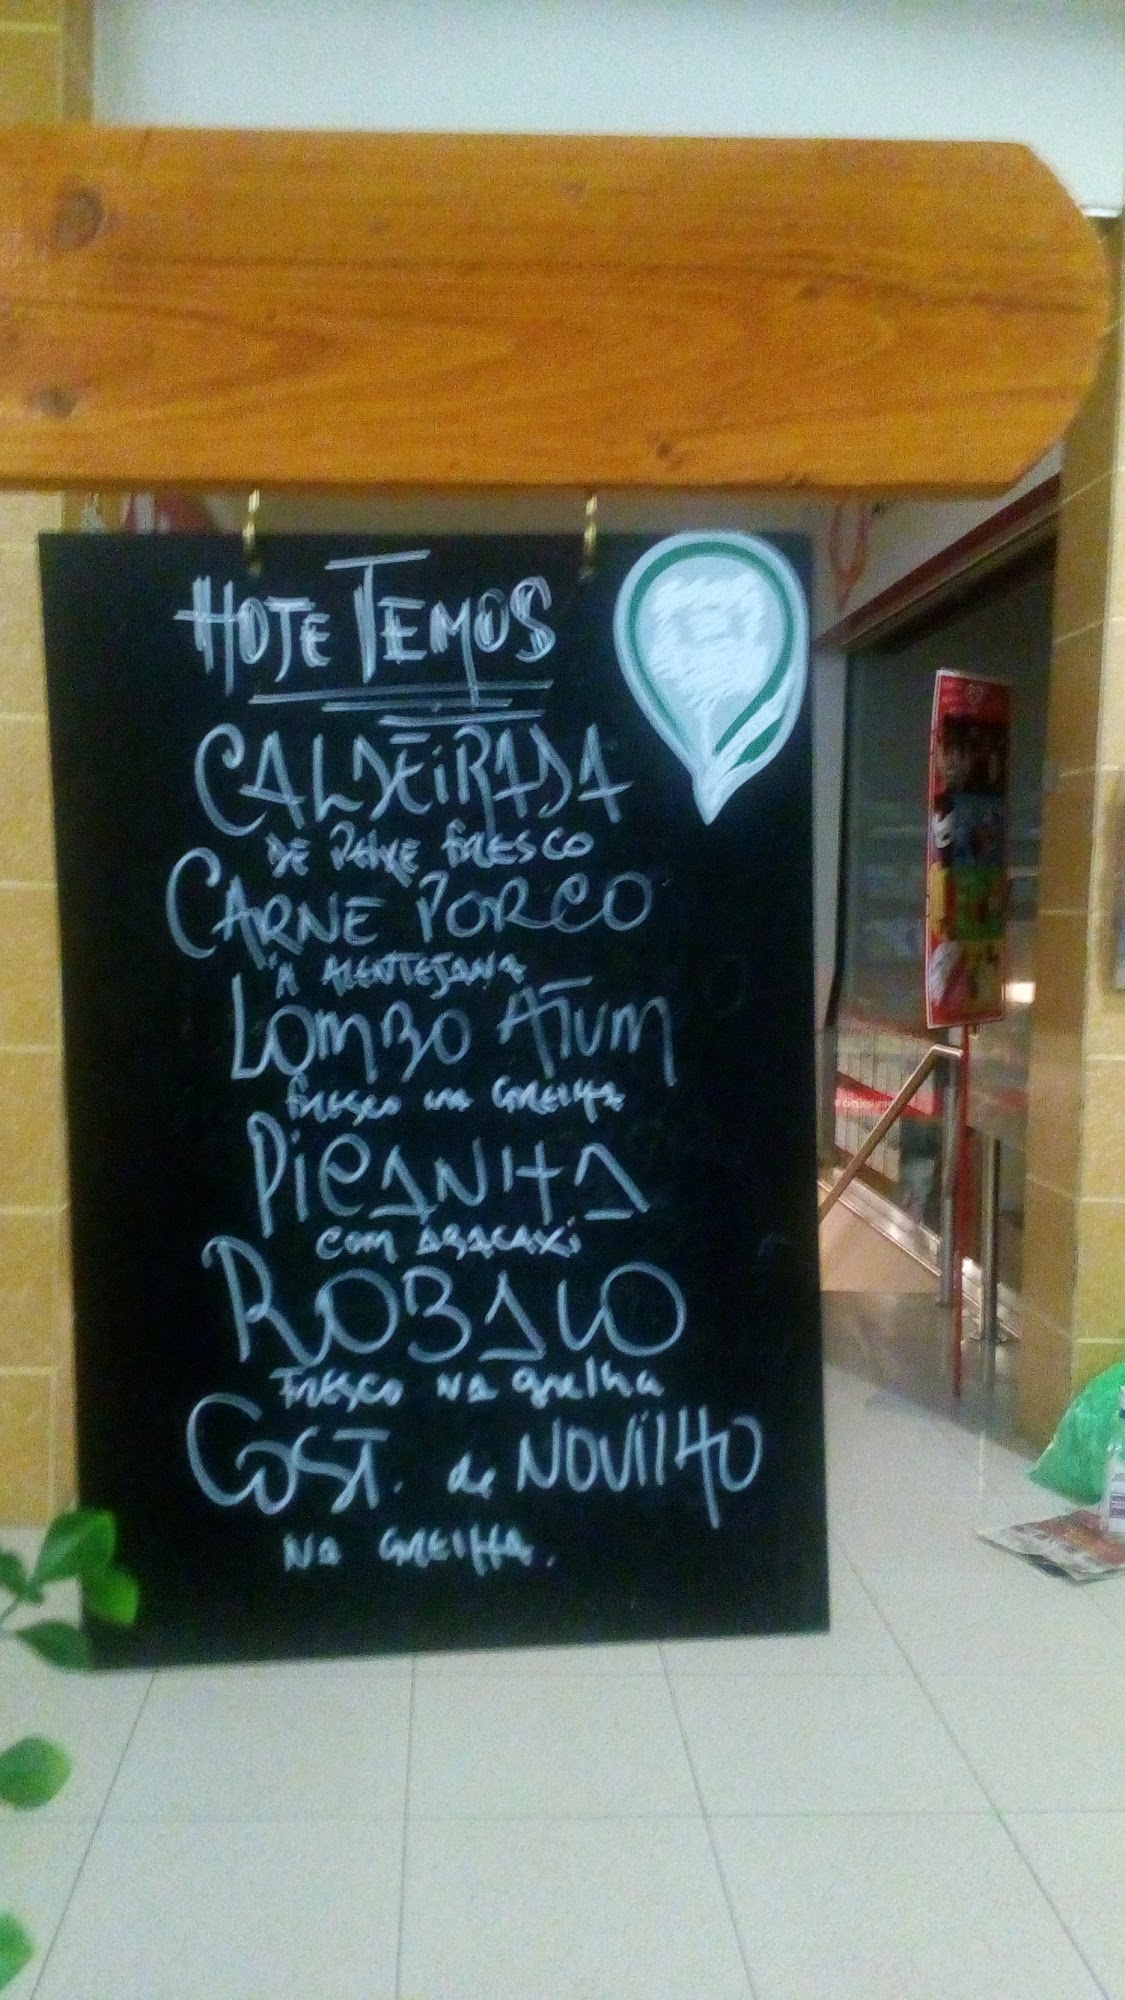 HOJE TEMOS
CALDEIRADA
DE PEIXE FRESCO
CARNE PORCO
À ALENTEJANA
LOMBO ATUM
FRESCO NA GRELHA
PICANHA
COM ABACAXI
ROBALO
FRESCO NA grelha
COST. de NOVILHO
NA GRELHA.